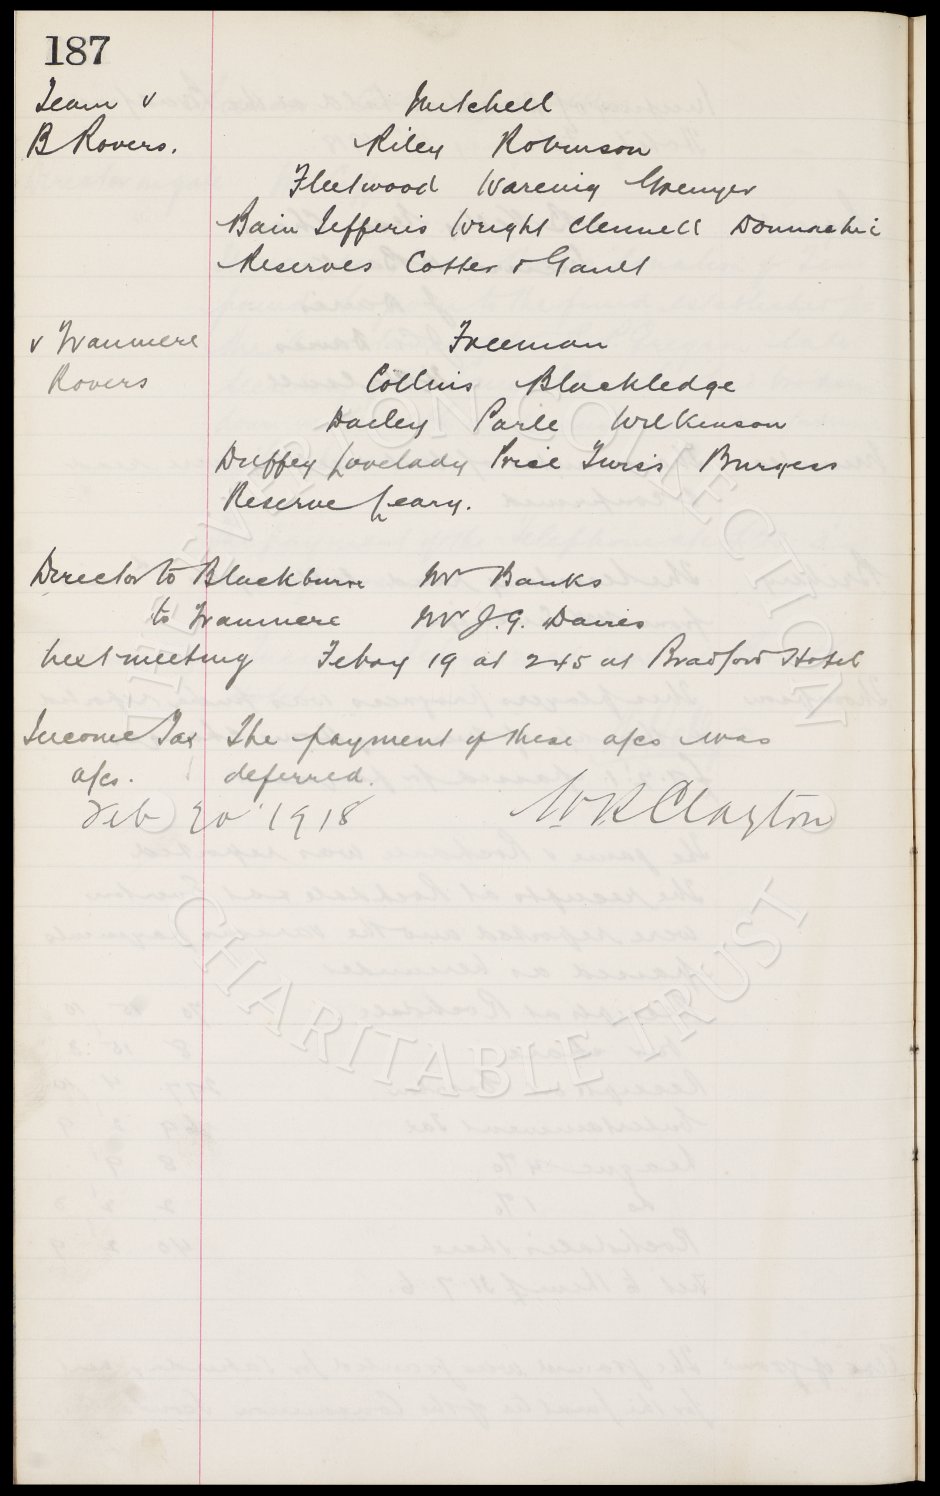 187
Team v Mitchell
B Rovers. Riley Robinson
Fleetwood Wareing Grenyer
Bain Jefferis Wright Clennell Donnachie
Reserves Cotter & Gault
v Tranmere Freeman
Rovers Collins Blackledge
Dailey Parle Wilkinson
Duffey Lovelady Price Twiss Burgess
Reserve Leary.
Director to Blackburn Mr Banks
to Tranmere Mr J.G. Davies
Next meeting Febay 19 at 245 at Bradford Hotel
Income Tax The payment of these a/cs was
a/cs. deferred.
Feb 20 1918 W R Clayton
THE EVERTON COLLECTION
CHARITABLE TRUST